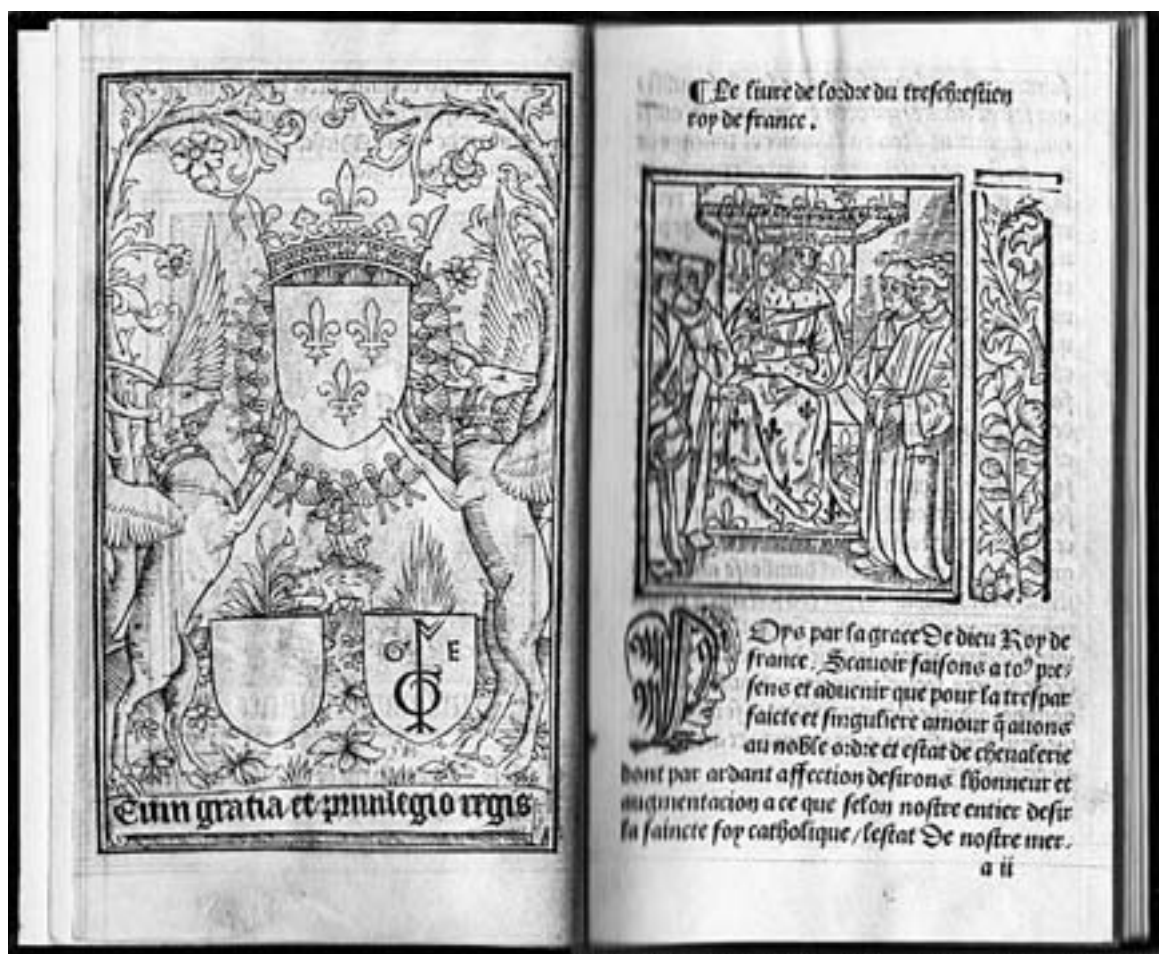 G E
Cum gratia et priuilegio regis
¶ Le liure de lordre du treschrestien
roy de france.
Oys par la grace De dieu Roy de
france. Scauoir faisons a to⁹ pre⸗
sens et aduenir que pour la trespar
faicte et singuliere amour q̃ auons
au noble ordre et estat de cheualerie
dont par ardant affection desirons lhonneur et
augmentacion a ce que selon nostre entier desir
la saincte foy catholique / lestat De nostre mer.
a ii